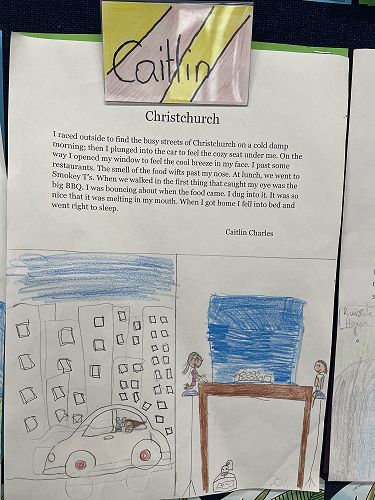 Caitlin
Christchurch
I raced outside to find the busy streets of Christchurch on a cold damp
morning; then I plunged into the car to feel the cozy seat under me. On the
way I opened my window to feel the cool breeze in my face. I past some
restaurants. The smell of the food wifts past my nose. At lunch, we went to
Smokey T's. When we walked in the first thing that caught my eye was the
big BBQ. I was bouncing about when the food came. I dug into it. It was so
nice that it was melting in my mouth. When I got home I fell into bed and
went right to sleep.
Caitlin Charles